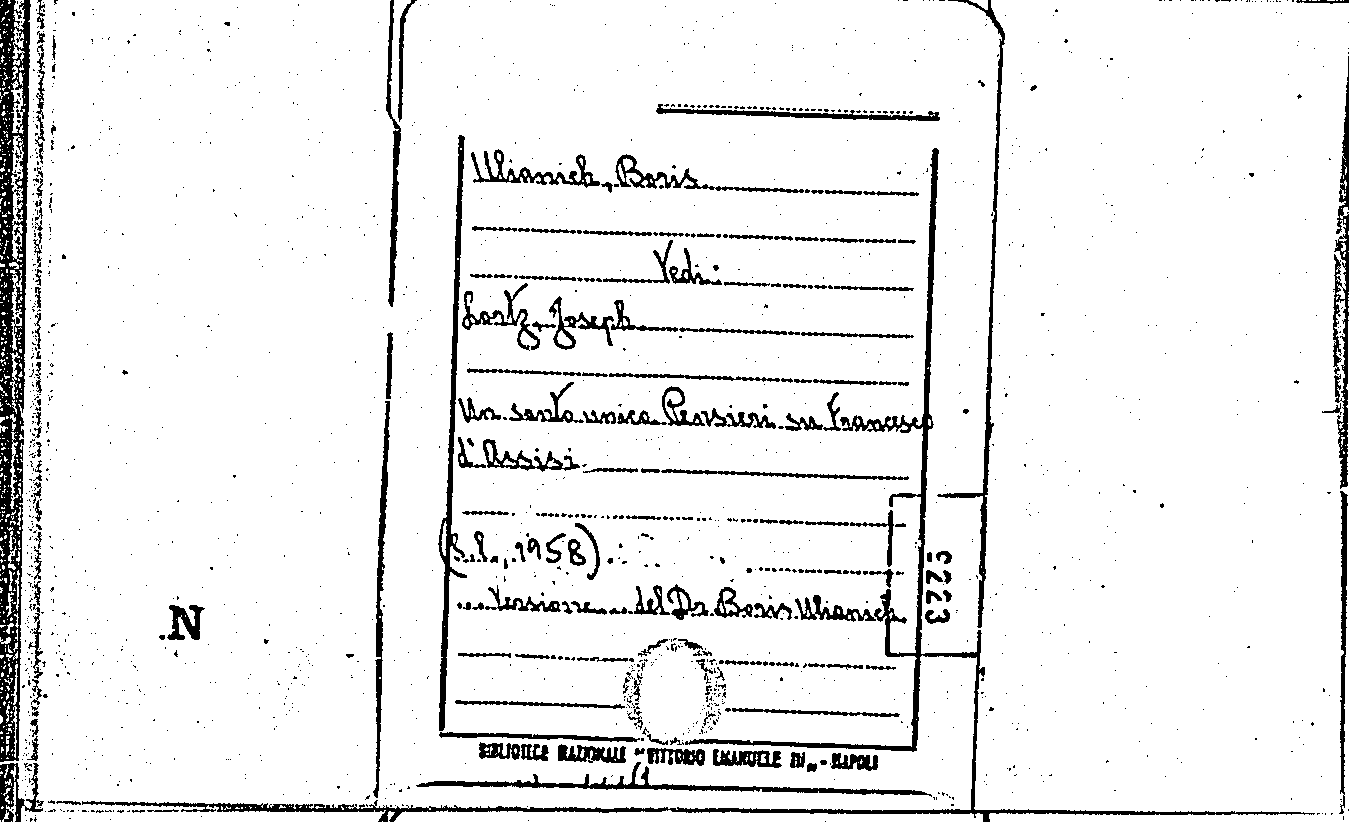 Ulianich, Boris
Vedi:
Lortz, Joseph
Un santo unico. Pensieri su Francesco
d'Assisi.
(s.l., 1958).
... Versione ... del Dr. Boris Ulianich.
5223
N
BIBLIOTECA NAZIONALE "VITTORIO EMANUELE III" - NAPOLI